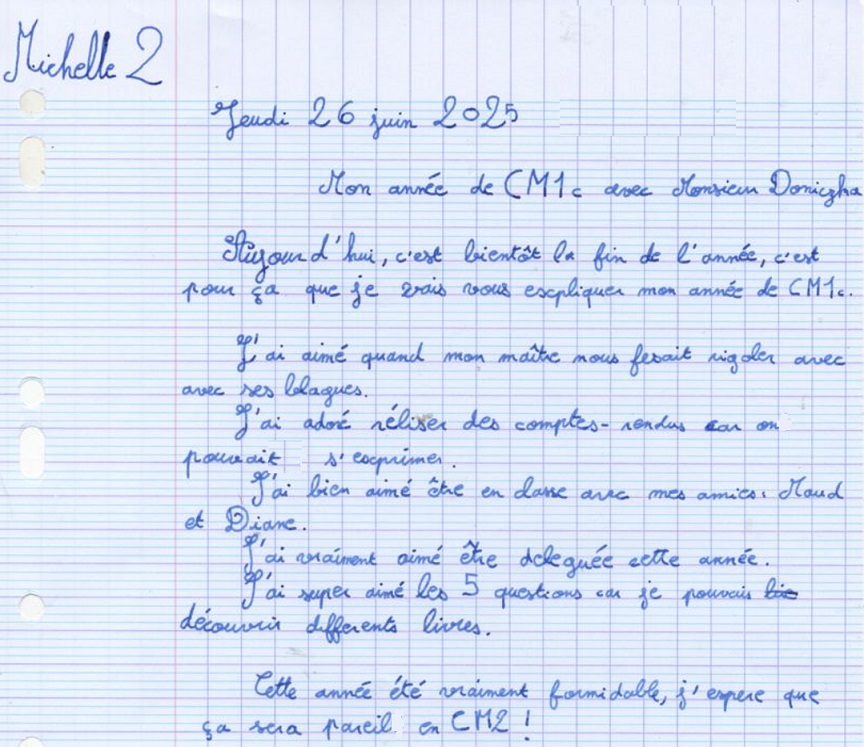 Michelle 2
Jeudi 26 juin 2025
Mon année de CM1c avec Monsieur Doniczka
Aujourd'hui, c'est bientôt la fin de l'année, c'est
pour ça que je vais vous escpliquer mon année de CM1c.
J'ai aimé quand mon maître nous fesait rigoler avec
avec ses blagues.
J'ai adoré réliser des comptes-rendus car on
pouvait s'escprimer.
J'ai bien aimé être en classe avec mes amies: Maud
et Diane.
J'ai vraiment aimé être deleguée cette année.
J'ai super aimé les 5 questions car je pouvais
découvrir differents livres.
Cette année été vraiment formidable, j'espere que
ça sera pareil en CM2 !